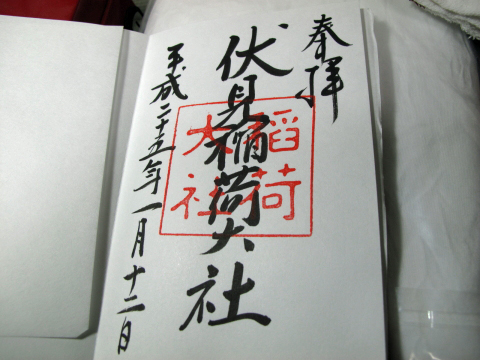 奉拝
伏見稲荷大社
稲荷
大社
平成二十五年一月十二日